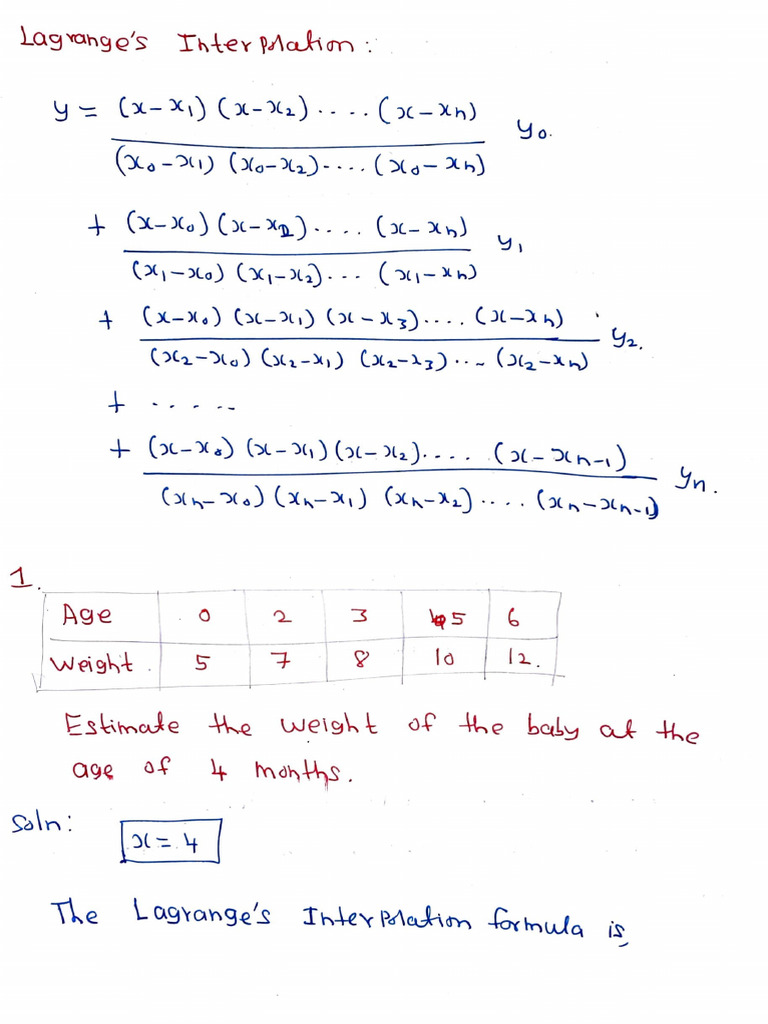 Lagrange's Interpolation:
y = (x-x₁) (x-x₂) ..... (x-xₙ)
y₀.
(x₀-x₁) (x₀-x₂)..... (x₀-xₙ)
+ (x-x₀) (x-x₂)..... (x-xₙ)
y₁
(x₁-x₀) (x₁-x₂)... (x₁-xₙ)
+ (x-x₀) (x-x₁) (x-x₃)..... (x-xₙ)
y₂.
(x₂-x₀) (x₂-x₁) (x₂-x₃)... (x₂-xₙ)
+ .....
+ (x-x₀) (x-x₁) (x-x₂)..... (x-xₙ₋₁)
yₙ.
(xₙ-x₀) (xₙ-x₁) (xₙ-x₂)..... (xₙ-xₙ₋₁)
1.
Age 0 2 3 5 6
Weight. 5 7 8 10 12.
Estimate the weight of the baby at the
age of 4 months.
Soln: x = 4
The Lagrange's Interpolation formula is,